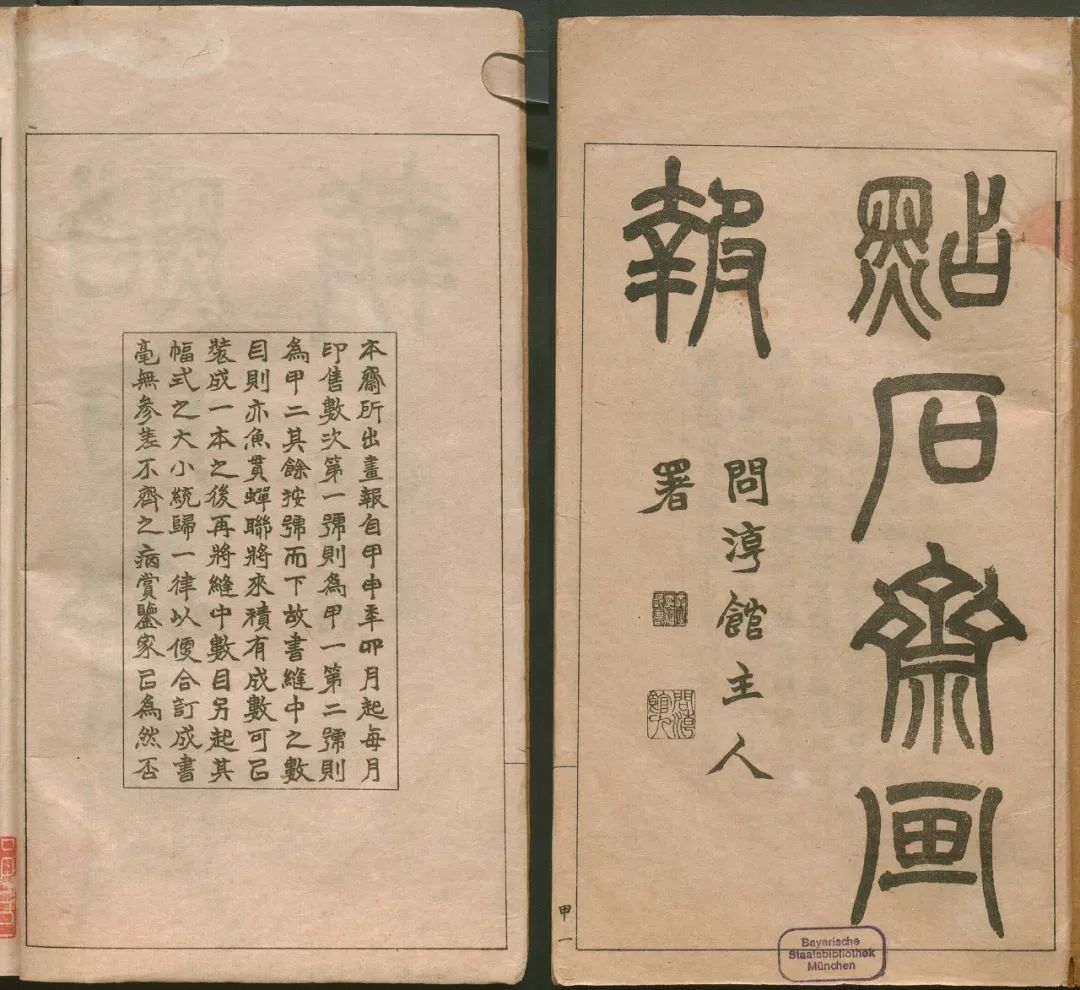 點石齋画
報
問渟館主人
署
甲一
Bayerische
Staatsbibliothek
München
本齋所出畫報自甲申年卯月起每月
印售數次第一號則為甲一第二號則
為甲二其餘按號而下故書縫中之數
目則亦魚貫蟬聯將來積有成數可已
裝成一本之後再將縫中數目另起其
幅式之大小統歸一律以便合訂成書
毫無參差不齊之病賞鑒家已為然否